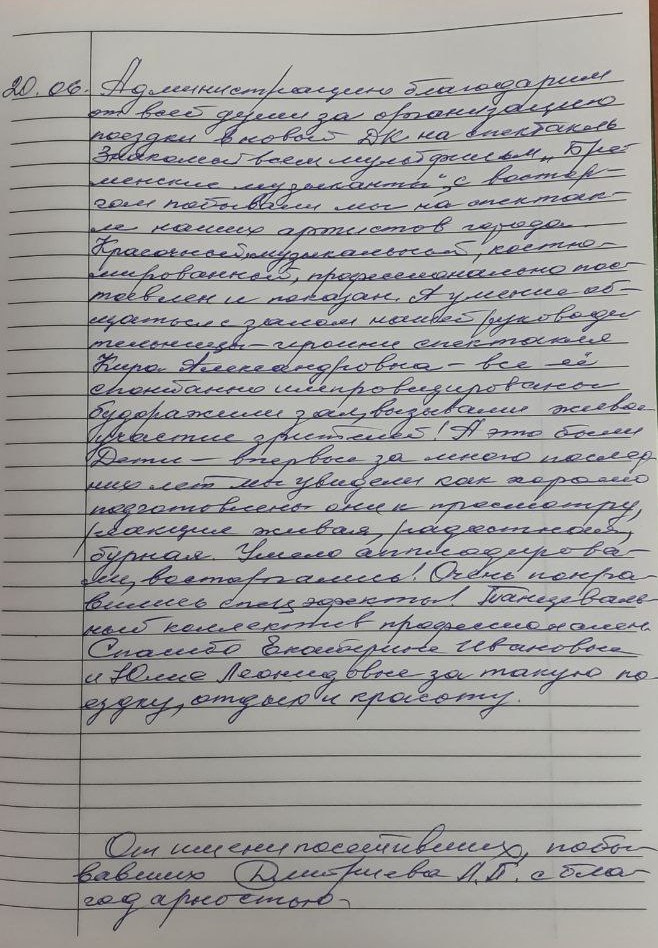 20.06. Администрацию благодарим
от всей души за организацию
поездки в новый ДК на спектакль
Знакомый всем мультфильм „Бре-
менские музыканты", с востор-
гом побывали мы на спектак-
ле наших артистов города.
Красочный, музыкальный, костю-
мированный, профессионально пос-
тавлен и показан. А умение об-
щаться с залом нашей руководи
тельницы – героини спектакля
Кира Александровна – все её
спонтанно импровизированы
будоражили зал, вызывали живое
участие зрителей! А это были
Дети – впервые за много послед
них лет мы увидели как хорошо
подготовлены они к просмотру,
реакция живая, радостная,
бурная. Умело апплодирова-
ли, восторгались! Очень понра-
вились спецэффекты! Танцеваль-
ный коллектив профессионален.
Спасибо Екатерине Ивановне
и Юлие Леонидовне за такую по-
ездку, отдых и красоту.
От имени посетивших, побы-
вавших Дмитриева Л.П. с бла-
годарностью-